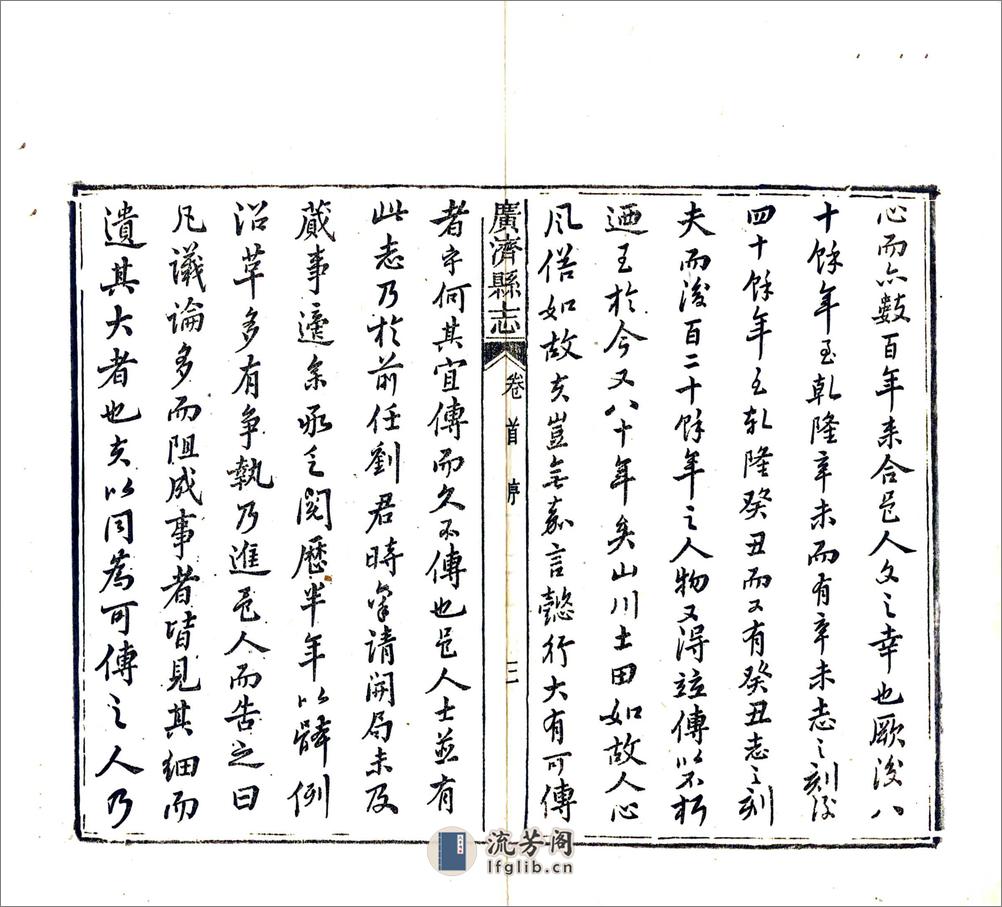 心而亦數百年來合邑人文之幸也厥後八
十餘年至乾隆辛未而有辛未志之刻後
四十餘年至乾隆癸丑而又有癸丑志之刻
夫而後百二十餘年之人物又得竝傳以不朽
迺至於今又八十年矣山川土田如故人心
風俗如故豈無嘉言懿行大有可傳
廣濟縣志
卷首
序
三
者乎何其宜傳而久不傳也邑人士並有
此志乃於前任劉君時稟請開局未及
蕆事適余承乏閱歷半年以體例
沿革多有爭執乃進邑人而告之曰
凡議論多而阻成事者皆見其細而
遺其大者也夫以同為可傳之人乃
流芳阁
lfglib.cn